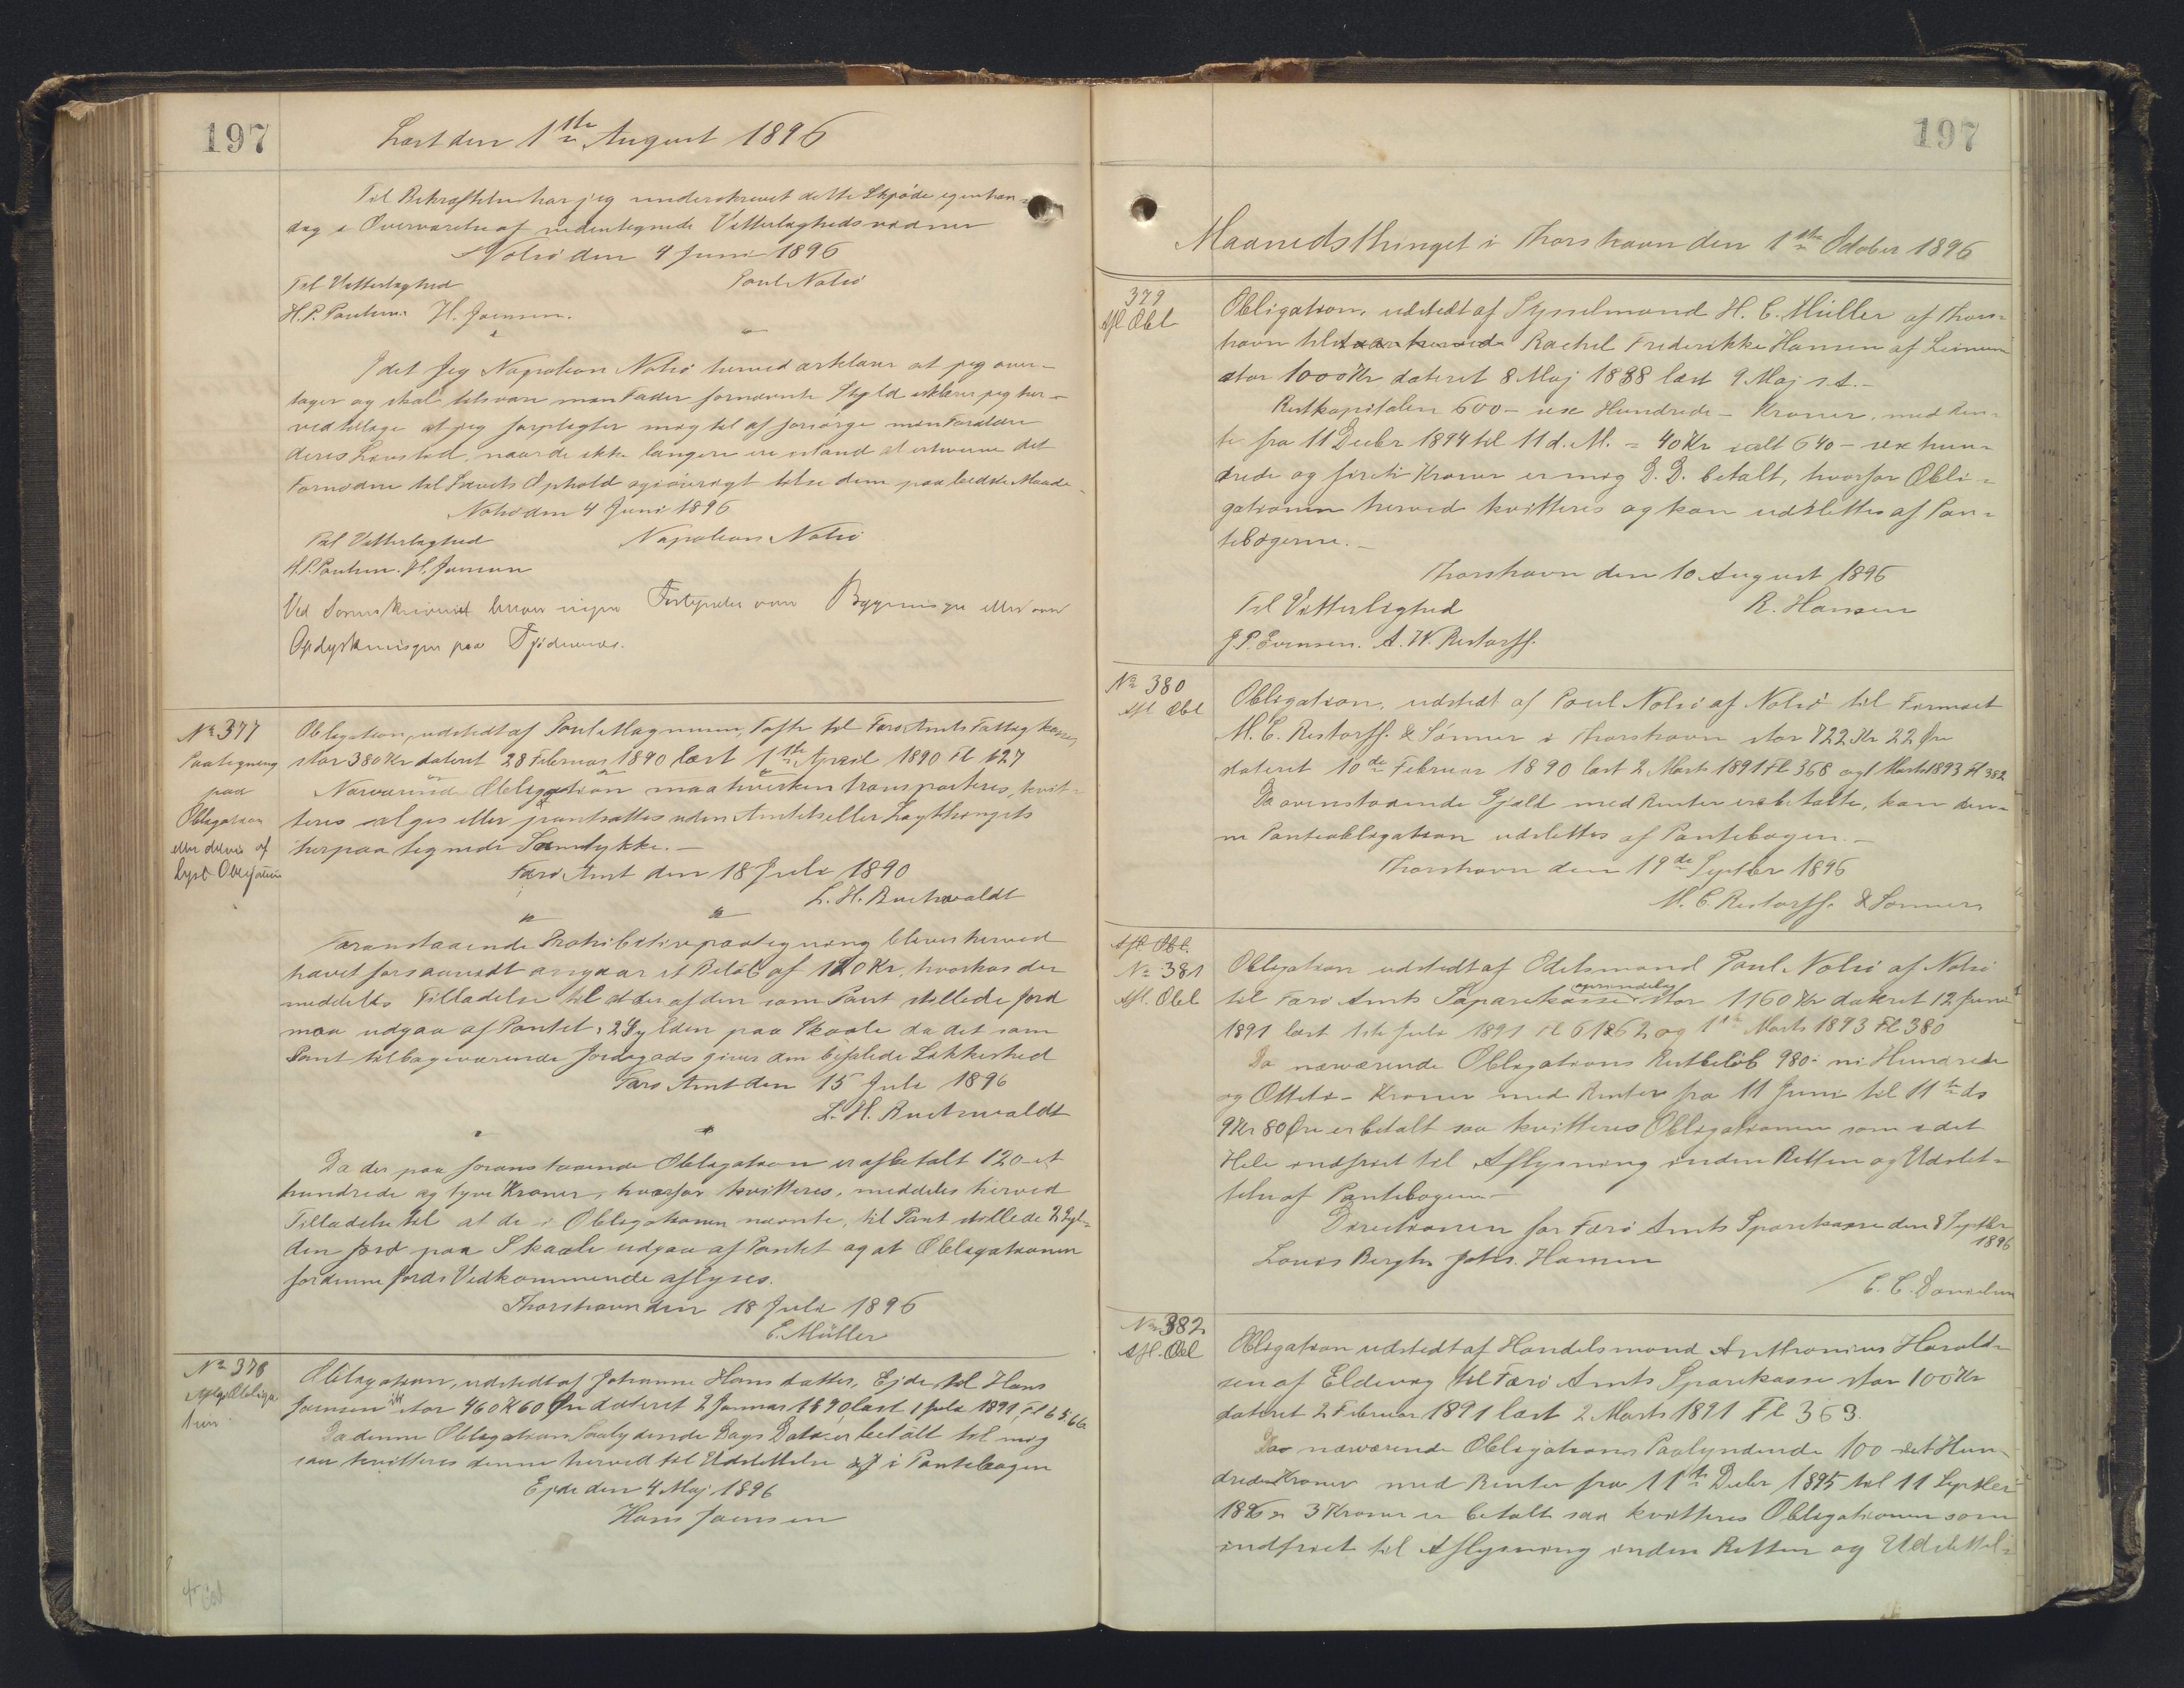 197
Læst den 1ste August 1896
Til Bekræftelse har jeg underskrevet dette Skjøde egenhæn-
dig i Overværelse af undertegnede Vitterlighedsvidner
Nolsø den 4 Juni 1896
Til Vitterlighed Poul Nolsø
H.P. Poulsen. H. Joensen.
Idet Jeg Napoleon Nolsø herved erklærer at jeg over-
tager og skal tilsvare min Fader fornævnte Skyld erklærer jeg her-
ved tillige at jeg forpligter mig til at forsørge mine Forældre
deres Livstid, naar de ikke længere ere istand at erhverve det
Fornødne til Livets Ophold og iøvrigt tilse dem paa bedste Maade.
Nolsø den 4 Juni 1896
Til Vitterlighed Napoleon Nolsø
H.P. Poulsen. H. Joensen
Ved Sorenskriveriet haves ingen Fortegnelse over Bygninger eller over
Opdyrkningen paa Ejendommen.
No 377
Paategning
paa
Obligation
eller delvis af
lyst Obligation
Obligation, udstedt af Poul Magnussen, Tofte til Færø Amts Fattigkasse,
stor 380 Kr dateret 28 Februar 1890 læst 1ste April 1890 Fl 127
Nærværende Obligation maa hverken transporteres, kvit-
teres sælges eller pantsættes uden Amtets eller Lagthingets
herpaa tegnede Samtykke.
Færø Amt den 18 Juli 1890
L. H. Buchwaldt
Foranstaaende Prohibitivpaategning bliver herved
hævet forsaavidt angaar et Beløb af 120 Kr, hvorhos der
meddeles Tilladelse til at der af den som Pant stillede Jord
maa udgaa af Pantet, 2 Gylden paa Skaale da det som
Pant tilbageværende Jordegods giver den befalede Sikkerhed
Færø Amt den 15 Juli 1896
L. H. Buchwaldt
Da der paa foranstaaende Obligation er afbetalt 120 - et
hundrede og tyve Kroner, hvorfor kvitteres, meddeles herved
Tilladelse til at de i Obligationen nævnte, til Pant stillede 2 Gyl-
den Jord paa Skaale udgaa af Pantet og at Obligationen
for denne Jords Vedkommende aflyses.
Thorshavn den 18 Juli 1896
E. Müller
No 378
Aflyst Obliga
tion
Obligation, udstedt af Johanne Hans datter, Ejde, til Hans
Joensen ibd stor 460 K 60 Øre dateret 2 Januar 1890, læst 1 Juli 1891, Fl 65 66
Da denne Obligations Paalydende Dags Dato er betalt til mig
saa kvitteres denne herved til Udslettelse af i Pantebogen
Ejde den 4 Maj 1896
Hans Joensen
197
Maanedsthinget i Thorshavn den 1ste October 1896
379
Afl Obl
Obligation, udstedt af Sysselmand H. C. Müller af Thors-
havn til Rachel Frederikke Hansen af Leinum
stor 1000 Kr dateret 8 Maj 1888 læst 9 Maj s.A.
Restkapitalen 600 - sex Hundrede - Kroner, med Ren-
te fra 11 Decbr 1894 til 11 d. M. = 40 Kr ialt 640 - sex hun-
drede og fireti Kroner er mig D. D. betalt, hvorfor Obli-
gationen herved kvitteres og kan udslettes af Pan-
tebøgerne.
Thorshavn den 10 August 1896
Til Vitterlighed R. Hansen
J. P. Evensen. A. W. Restorff.
No 380
Afl Obl
Obligation, udstedt af Poul Nolsø af Nolsø til Firmaet
M. C. Restorff. & Sønner i Thorshavn stor 722 Kr 22 Øre
dateret 10de Februar 1890 læst 2 Marts 1891 Fl 368 og 1 Marts 1893 Fl 382
Da ovenstaaende Gjæld med Renter er betalte, kan den-
ne Panteobligation udslettes af Pantebogen.
Thorshavn den 19de Septbr 1896
M. C. Restorff. & Sønner
Afl. Obl.
No 381
Afl. Obl
Obligation udstedt af Odelsmand Poul Nolsø af Nolsø
til Færø Amts Sparekasse oprindelig stor 1160 Kr dateret 12 Juni
1891 læst 1ste Juli 1891 Fl 61 & 62 og 1ste Marts 1893 Fl 380
Da nærværende Obligations Restbeløb 980 - ni Hundrede
og Otteti - Kroner med Renter fra 11 Juni til 11te ds
9 Kr 80 Øre er betalt saa kvitteres Obligationen som i det
Hele indfriet til Aflysning inden Retten og Udslet-
telse af Pantebogen.
Directionen for Færø Amts Sparekasse den 8 Septbr
1896
Louis Bergh Johs. Hansen
C. C. Danielsen
No 382
Afl. Obl
Obligation udstedt af Handelsmand Anthonius Harald-
sen af Eldevig til Færø Amts Sparekasse stor 100 Kr
dateret 2 Februar 1891 læst 2 Marts 1891 Fl 363.
Da nærværende Obligations Paalydende 100 - et Hun-
drede Kroner med Renter fra 11te Decbr 1895 til 11 Septbr
1896 3 Kroner er betalt saa kvitteres Obligationen som
indfriet til Aflysning inden Retten og Udslettel-